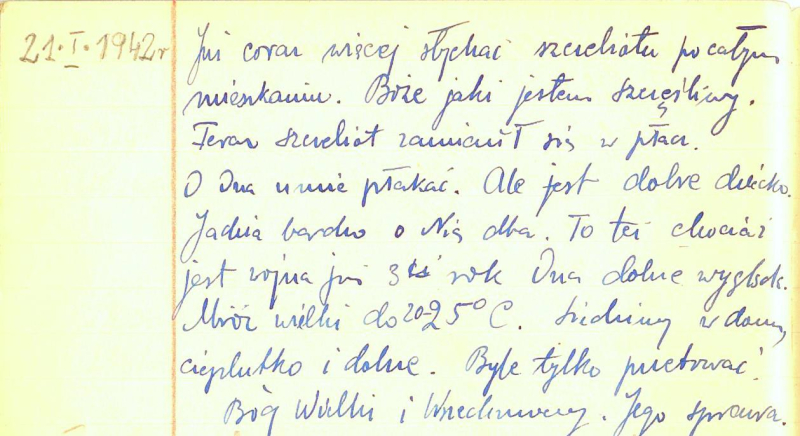 21.I.1942r
Już coraz więcej słychać szczebiotu po całym
mieszkaniu. Boże jaki jestem szczęśliwy.
Teraz szczebiot zamienił się w płacz.
O Ina umie płakać. Ale jest dobre dziecko.
Jadzia bardzo o Nią dba. To też chociaż
jest wojna już 3ci rok Ina dobrze wygląda.
Mróz wielki do 20-25° C. Siedzimy w domu,
cieplutko i dobrze. Byle tylko przetrwać.
Bóg Wielki i Wszechmocny. Jego sprawa.